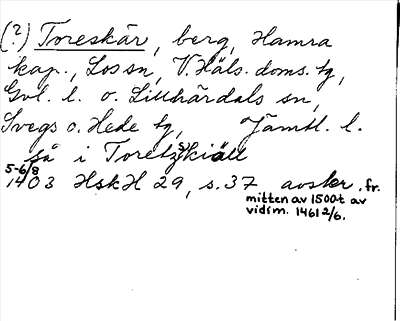 (?) Toreskär, berg, Hamra
kap., Los sn, V. Häls. doms. tg,
Gvl. l. o. Lillhärdals sn,
Svegs o. Hede tg, Jämtl. l.
på i Toretzskiäll
5-6/8
1403 HskH 29, s. 37 avskr. fr.
mitten av 1500-t av
vidim. 1461 2/6.